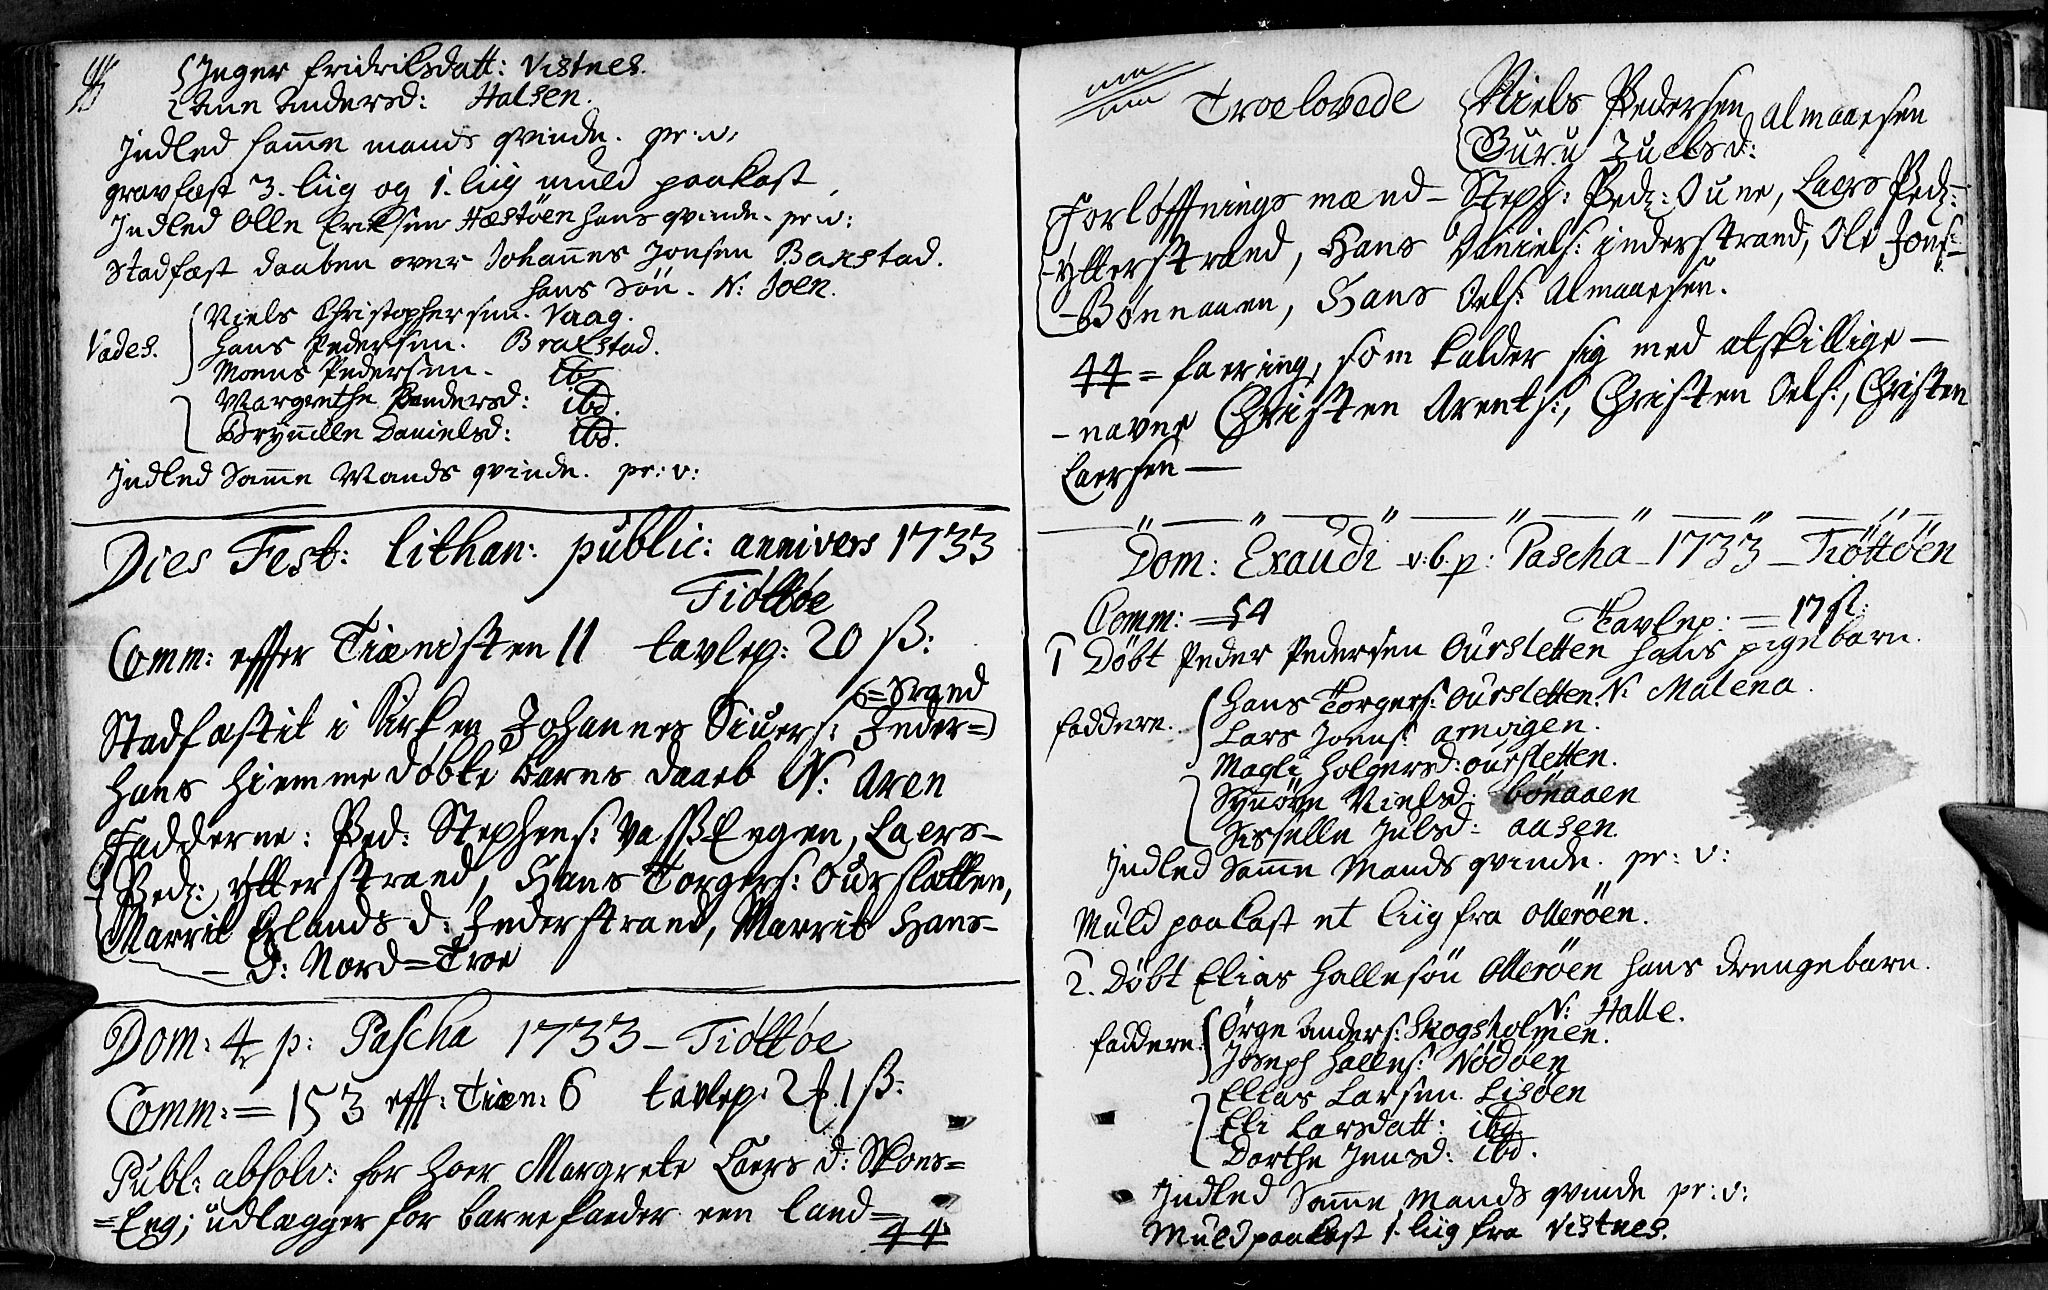 Inger Fridrilsdatt: Vistnes.
Ane Andersd: Halsen.
Indled samme mands qvinde. pr: v:
gravfæst 3. liig og 1. liig muld paakast,
Indled Olle Eriksen Hæstöen hans qvinde. pr: v:
Stadfæst daaben over Johannes Jonsen Baxstad.
hans Sön. N: Joen.
Niels Christophersen. Vaag.
Vades. Hans Pedersen. Braxstad.
Moens Pedersen. ibd
Margrethe Andersd: ibd.
Brÿnille Danielsd: ibd.
Indled Samme Mands qvinde. pr: v:
Dies Fest: lithan: public: annivers 1733
Tiöttöe
Comm: effter Tienisten 11 tavlep: 20 ß:
=Strand
Stadfæstit i Kirken Johannes Siuers: Inder=
Hans hiemme döbte barns daaeb N: Aren
Fadderne: Ped: Stephens: VassEngen, Laers-
Ped: ytterstrand, Hans Torgers: Ourslatten,
Marrit Erlands d: Inderstrand, Marrit Hans-
- d: Nord=Troe
Dom: 4 p: Pascha 1733 - Tiöttöe
Comm: = 153 eff: Tien: 6 tavlep: 2 1 ß:
Publ: absolv: for hoer Margrete Laers d: Skons=
=Eng; udlægger for barnefaeder een land=
44
Troelovede Niels Pedersen almaaesen
Guru Juelsd:
Forlöffningsmænd - Steph: Ped: Oune, Laers Ped:-
-ytterstrand, Hans Daniels: inderstrand, Ole Jons:-
-Bönnaaen, Hans Oels: Almaaesen.
44 = faering, som kalder sig med atskillige -
-navne Christen Arents:, Christen Oels:, Christen
Laersen -
Dom: Exaudi v: 6. p: Pascha - 1733 - Tiöttöen
Comm: = 54 Tavlep: = 17 st:
1 Döbt Peder Pedersen Oursletten hans pigebarn.
Hans Torgers: Oursletten. N: Malena.
faddere. Lars Joens: arnvigen.
Magli Holgersd: oursletten.
Synöve Nielsd: bönaaen
Sisselle Julsd: aasen.
Indled Samme Mands qvinde. pr: v:
Muld paakast et liig fra Olleröen.
2. Döbt Elias Hallesön Olleröen hans drengebarn.
N: Halle.
faddere: Örge Anders: Skogsholmen.
Joseph Halles: Nödöen
Elias Larsen Lisöen
Eli Larsdatt: ibd.
Dorthe Jensd: ibd.
Indled Samme Mands qvinde pr: v:
Muld paakast 1. liig fra Vistnes.